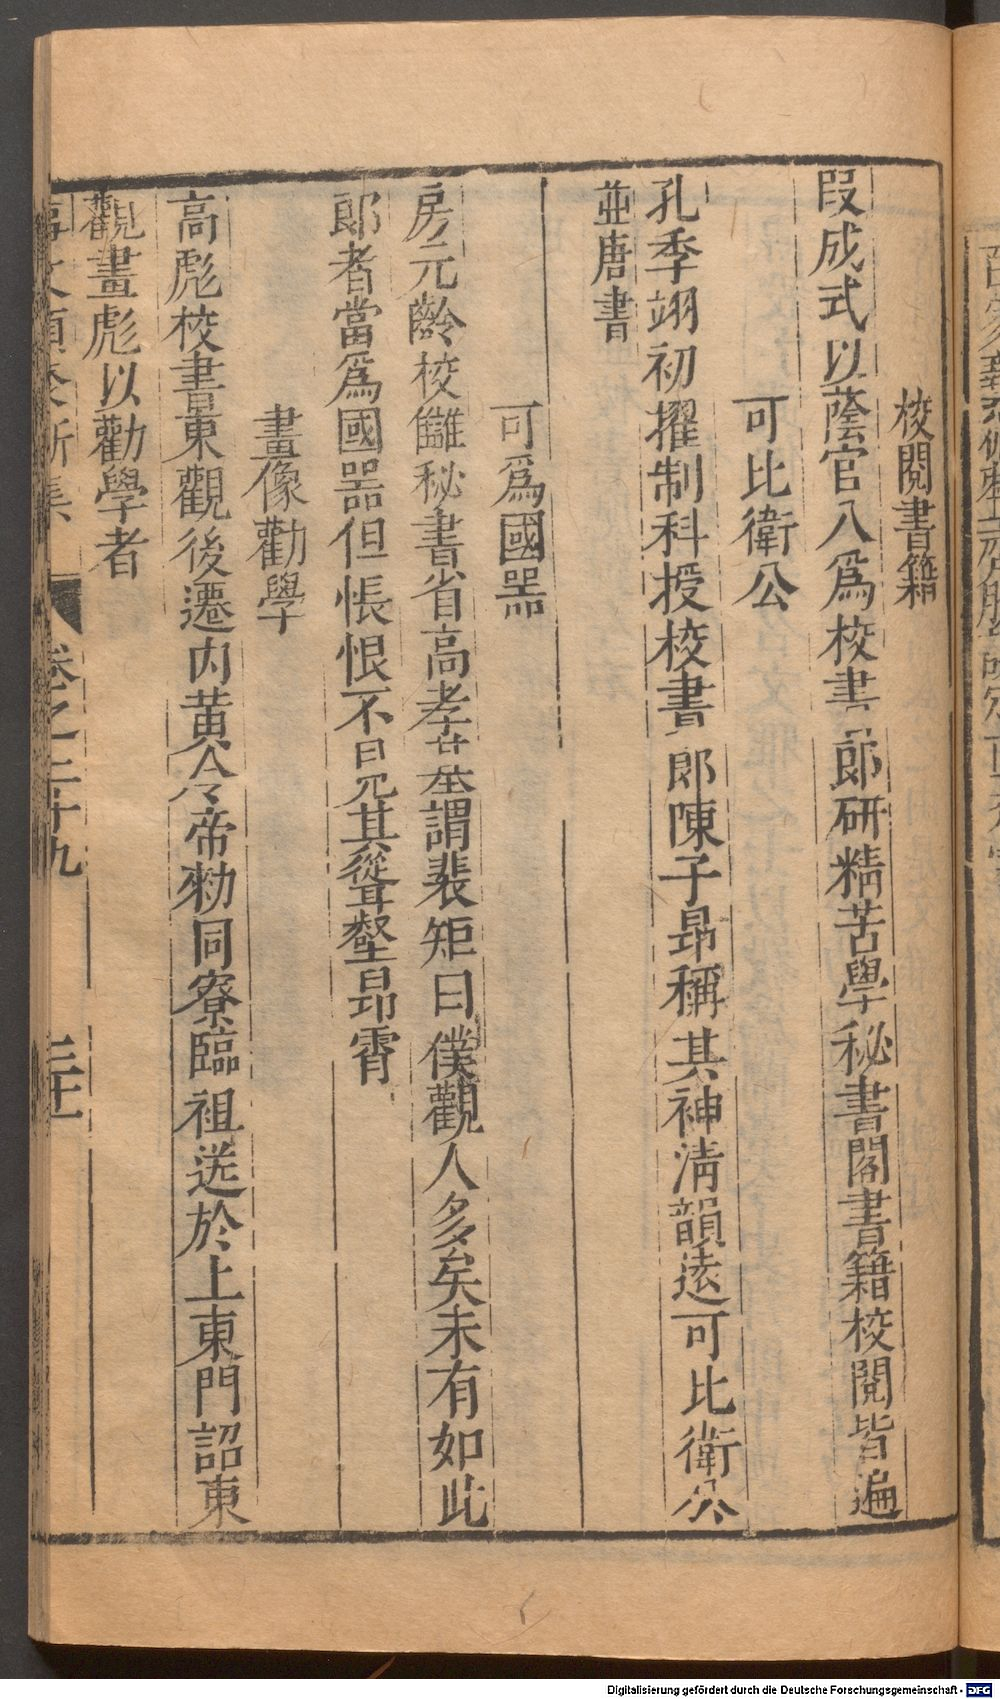 校閱書籍
段成式以蔭官入爲校書郎研精苦學秘書閣書籍校閱皆遍
可比衛公
孔季翊初擢制科授校書郎陳子昻稱其神清韻遠可比衛公
並唐書
可爲國器
房元齡校讎秘書省高孝基謂裴矩曰僕觀人多矣未有如此
郎者當爲國器但悵恨不見其聳壑昻霄
畫像勸學
高彪校書東觀後遷内黄令帝勑同寮臨祖送於上東門詔東
觀畫彪以勸學者
卷之二十九
Digitalisierung gefördert durch die Deutsche Forschungsgemeinschaft - DFG